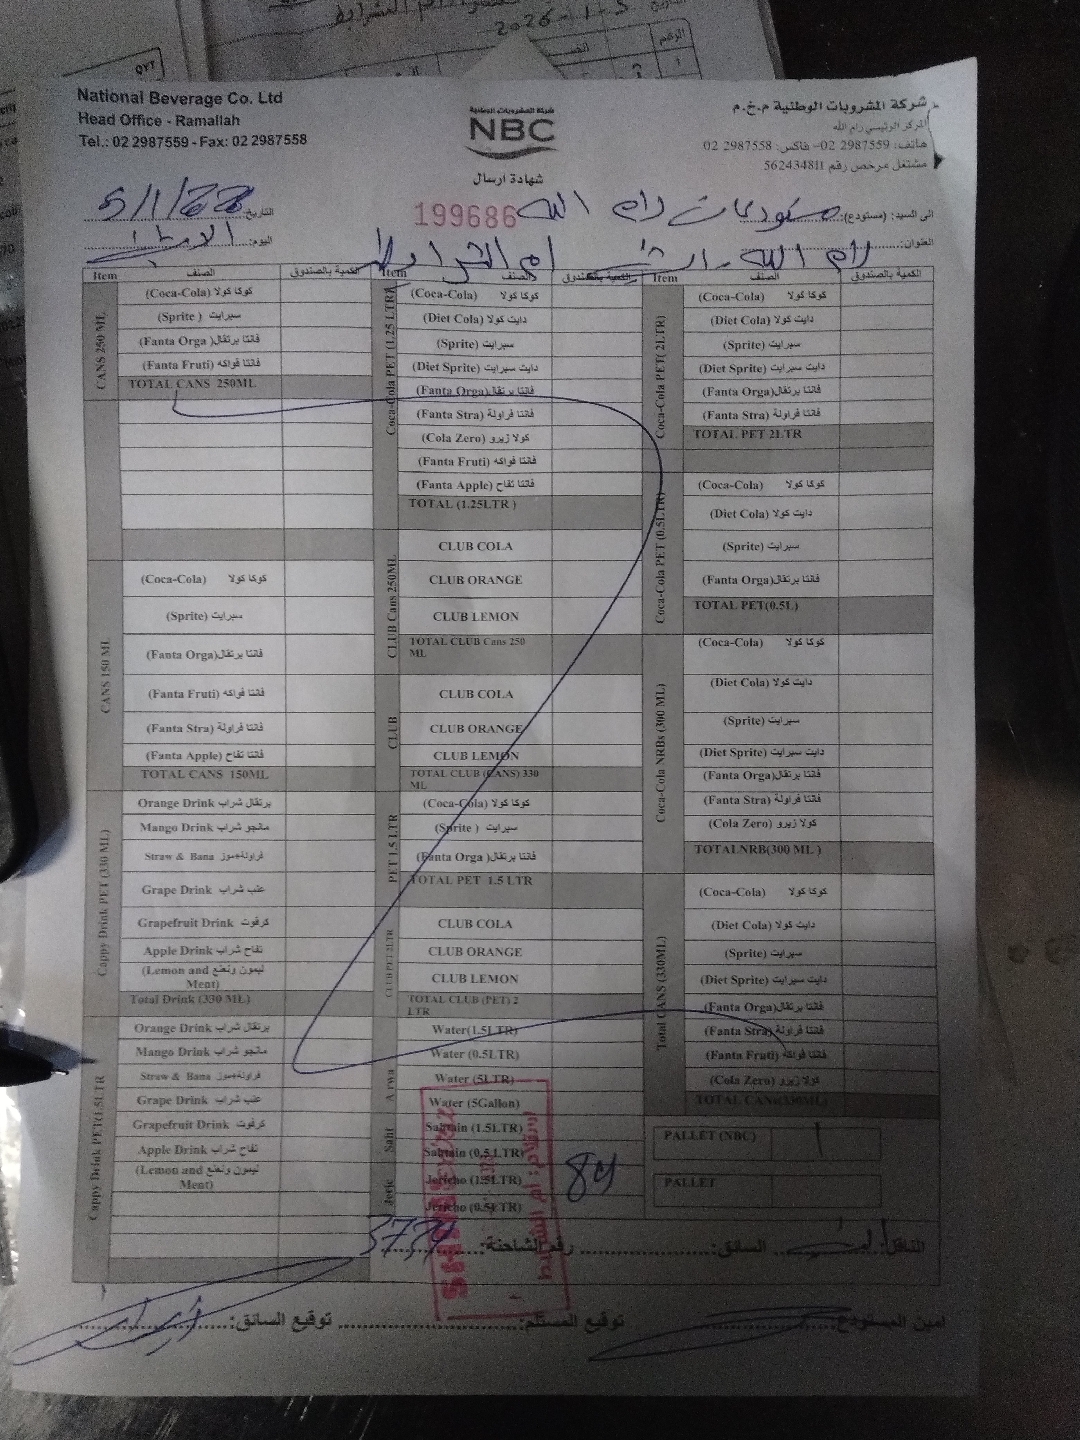 2026-1-5
الرقم
National Beverage Co. Ltd
Head Office - Ramallah
Tel.: 02 2987559 - Fax: 02 2987558
شركة المشروبات الوطنية
NBC
شهادة ارسال
شركة المشروبات الوطنية م.خ.م
المركز الرئيسي رام الله
هاتف: 2987559 02- فاكس: 2987558 02
مشتغل مرخص رقم 562434811
الى السيد: (مستودع): مستودعات رام الله
199686
التاريخ: 5/1/
العنوان: رام الله - ام الشرايط
اليوم:
Item الصنف الكمية بالصندوق
CANS 250 ML
(Coca-Cola) كوكا كولا
(Sprite ) سبرايت
(Fanta Orga )فانتا برتقال
(Fanta Fruti) فانتا فواكه
TOTAL CANS 250ML
CANS 150 ML
(Coca-Cola) كوكا كولا
(Sprite) سبرايت
(Fanta Orga)فانتا برتقال
(Fanta Fruti) فانتا فواكه
(Fanta Stra) فانتا فراولة
(Fanta Apple) فانتا تفاح
TOTAL CANS 150ML
Cappy Drink PET (330 ML)
Orange Drink برتقال شراب
Mango Drink مانجو شراب
Straw & Bana فراولة+موز
Grape Drink عنب شراب
Grapefruit Drink كرفوت
Apple Drink تفاح شراب
(Lemon and ليمون ونعنع
Ment)
Total Drink (330 ML)
Cappy Drink PET(1.5LTR
Orange Drink برتقال شراب
Mango Drink مانجو شراب
Straw & Bana فراولة+موز
Grape Drink عنب شراب
Grapefruit Drink كرفوت
Apple Drink تفاح شراب
(Lemon and ليمون ونعنع
Ment)
Item الصنف الكمية بالصندوق
Coca-Cola PET (1.25 LTR)
(Coca-Cola) كوكا كولا
(Diet Cola) دايت كولا
(Sprite) سبرايت
(Diet Sprite) دايت سبرايت
(Fanta Orga)فانتا برتقال
(Fanta Stra) فانتا فراولة
(Cola Zero) كولا زيرو
(Fanta Fruti) فانتا فواكه
(Fanta Apple) فانتا تفاح
TOTAL (1.25LTR )
CLUB Cans 250ML
CLUB COLA
CLUB ORANGE
CLUB LEMON
TOTAL CLUB Cans 250
ML
CLUB
CLUB COLA
CLUB ORANGE
CLUB LEMON
TOTAL CLUB (CANS) 330
ML
PET 1.5 LTR
(Coca-Cola) كوكا كولا
(Sprite ) سبرايت
(Fanta Orga )فانتا برتقال
TOTAL PET 1.5 LTR
CLUB PET 2LTR
CLUB COLA
CLUB ORANGE
CLUB LEMON
TOTAL CLUB (PET) 2
LTR
Arwa
Water(1.5LTR)
Water (0.5LTR)
Water (5LTR)
Water (5Gallon)
Sahtain (1.5LTR)
Sahtain (0.5LTR)
Jeric
Jericho (1.5LTR)
Jericho (0.5LTR)
84
Item الصنف الكمية بالصندوق
Coca-Cola PET( 2LTR)
(Coca-Cola) كوكا كولا
(Diet Cola) دايت كولا
(Sprite) سبرايت
(Diet Sprite) دايت سبرايت
(Fanta Orga)فانتا برتقال
(Fanta Stra) فانتا فراولة
TOTAL PET 2LTR
Coca-Cola PET (0.5LTR)
(Coca-Cola) كوكا كولا
(Diet Cola) دايت كولا
(Sprite) سبرايت
(Fanta Orga)فانتا برتقال
TOTAL PET(0.5L)
Coca-Cola NRBs (300 ML)
(Coca-Cola) كوكا كولا
(Diet Cola) دايت كولا
(Sprite) سبرايت
(Diet Sprite) دايت سبرايت
(Fanta Orga)فانتا برتقال
(Fanta Stra) فانتا فراولة
(Cola Zero) كولا زيرو
TOTALNRB(300 ML )
Total CANS (330ML)
(Coca-Cola) كوكا كولا
(Diet Cola) دايت كولا
(Sprite) سبرايت
(Diet Sprite) دايت سبرايت
(Fanta Orga)فانتا برتقال
(Fanta Stra) فانتا فراولة
(Fanta Fruti) فانتا فواكه
(Cola Zero) كولا زيرو
TOTAL CANs(330ML)
PALLET (NBC) 1
PALLET
الناقل: السائق: رقم الشاحنة: 3774
امين المستودع: توقيع المستلم: توقيع السائق: